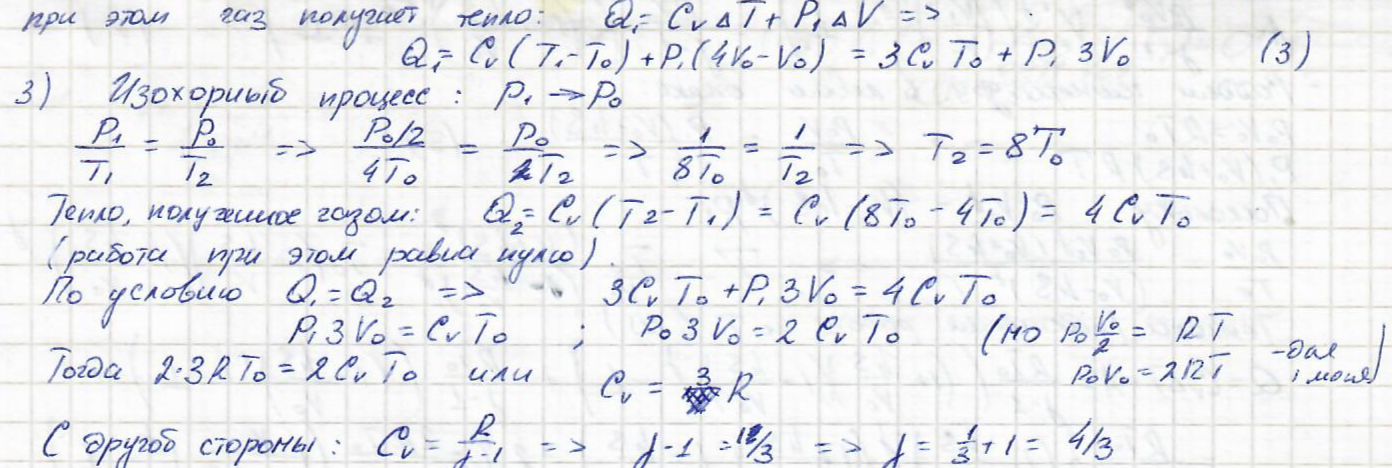 при этом газ получает тепло: Q₁ = Cᵥ ΔT + P₁ ΔV =>
Q₁ = Cᵥ (T₁ - T₀) + P₁ (4V₀ - V₀) = 3Cᵥ T₀ + P₁ 3V₀ (3)
3) Изохорный процесс: P₁ → P₀
P₁/T₁ = P₀/T₂ => (P₀/2)/4T₀ = P₀/T₂ => 1/8T₀ = 1/T₂ => T₂ = 8T₀
Тепло, полученное газом: Q₂ = Cᵥ (T₂ - T₁) = Cᵥ (8T₀ - 4T₀) = 4CᵥT₀
(работа при этом равна нулю).
По условию Q₁ = Q₂ => 3Cᵥ T₀ + P₁ 3V₀ = 4Cᵥ T₀
P₁ 3V₀ = Cᵥ T₀ ; P₀ 3V₀ = 2 Cᵥ T₀ (но P₀ V₀/2 = RT
P₀V₀ = 2RT - для 1 моля)
Тогда 2·3RT₀ = 2Cᵥ T₀ или Cᵥ = 3 R
С другой стороны: Cᵥ = R/γ-1 => γ-1 = 1/3 => γ = 1/3 + 1 = 4/3